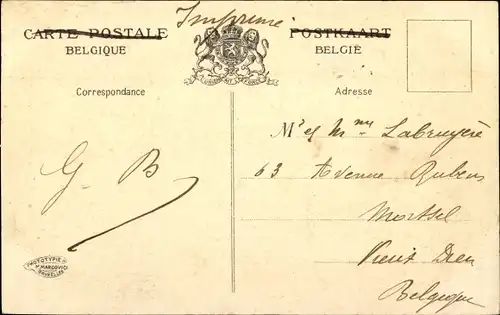 Imprimé
CARTE POSTALE
BELGIQUE
POSTKAART
BELGIË
Correspondance
Adresse
G B
Mr et Mme Labruyère
63 Avenue Rubens
Mortsel
Vieux Dieu
Belgique
PHOTOTYPIE
MARCOVICI
BRUXELLES